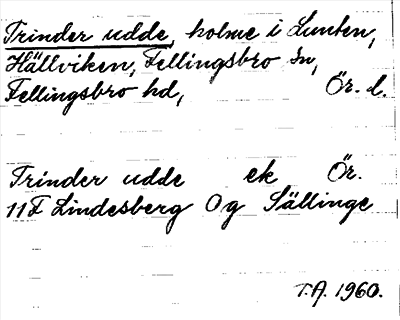 Trinder udde, holme i Lunten,
Hällviken, Fellingsbro sn,
Fellingsbro hd, Ör. l.
Trinder udde ek Ör.
11F Lindesberg Og Sällinge
T.A. 1960.